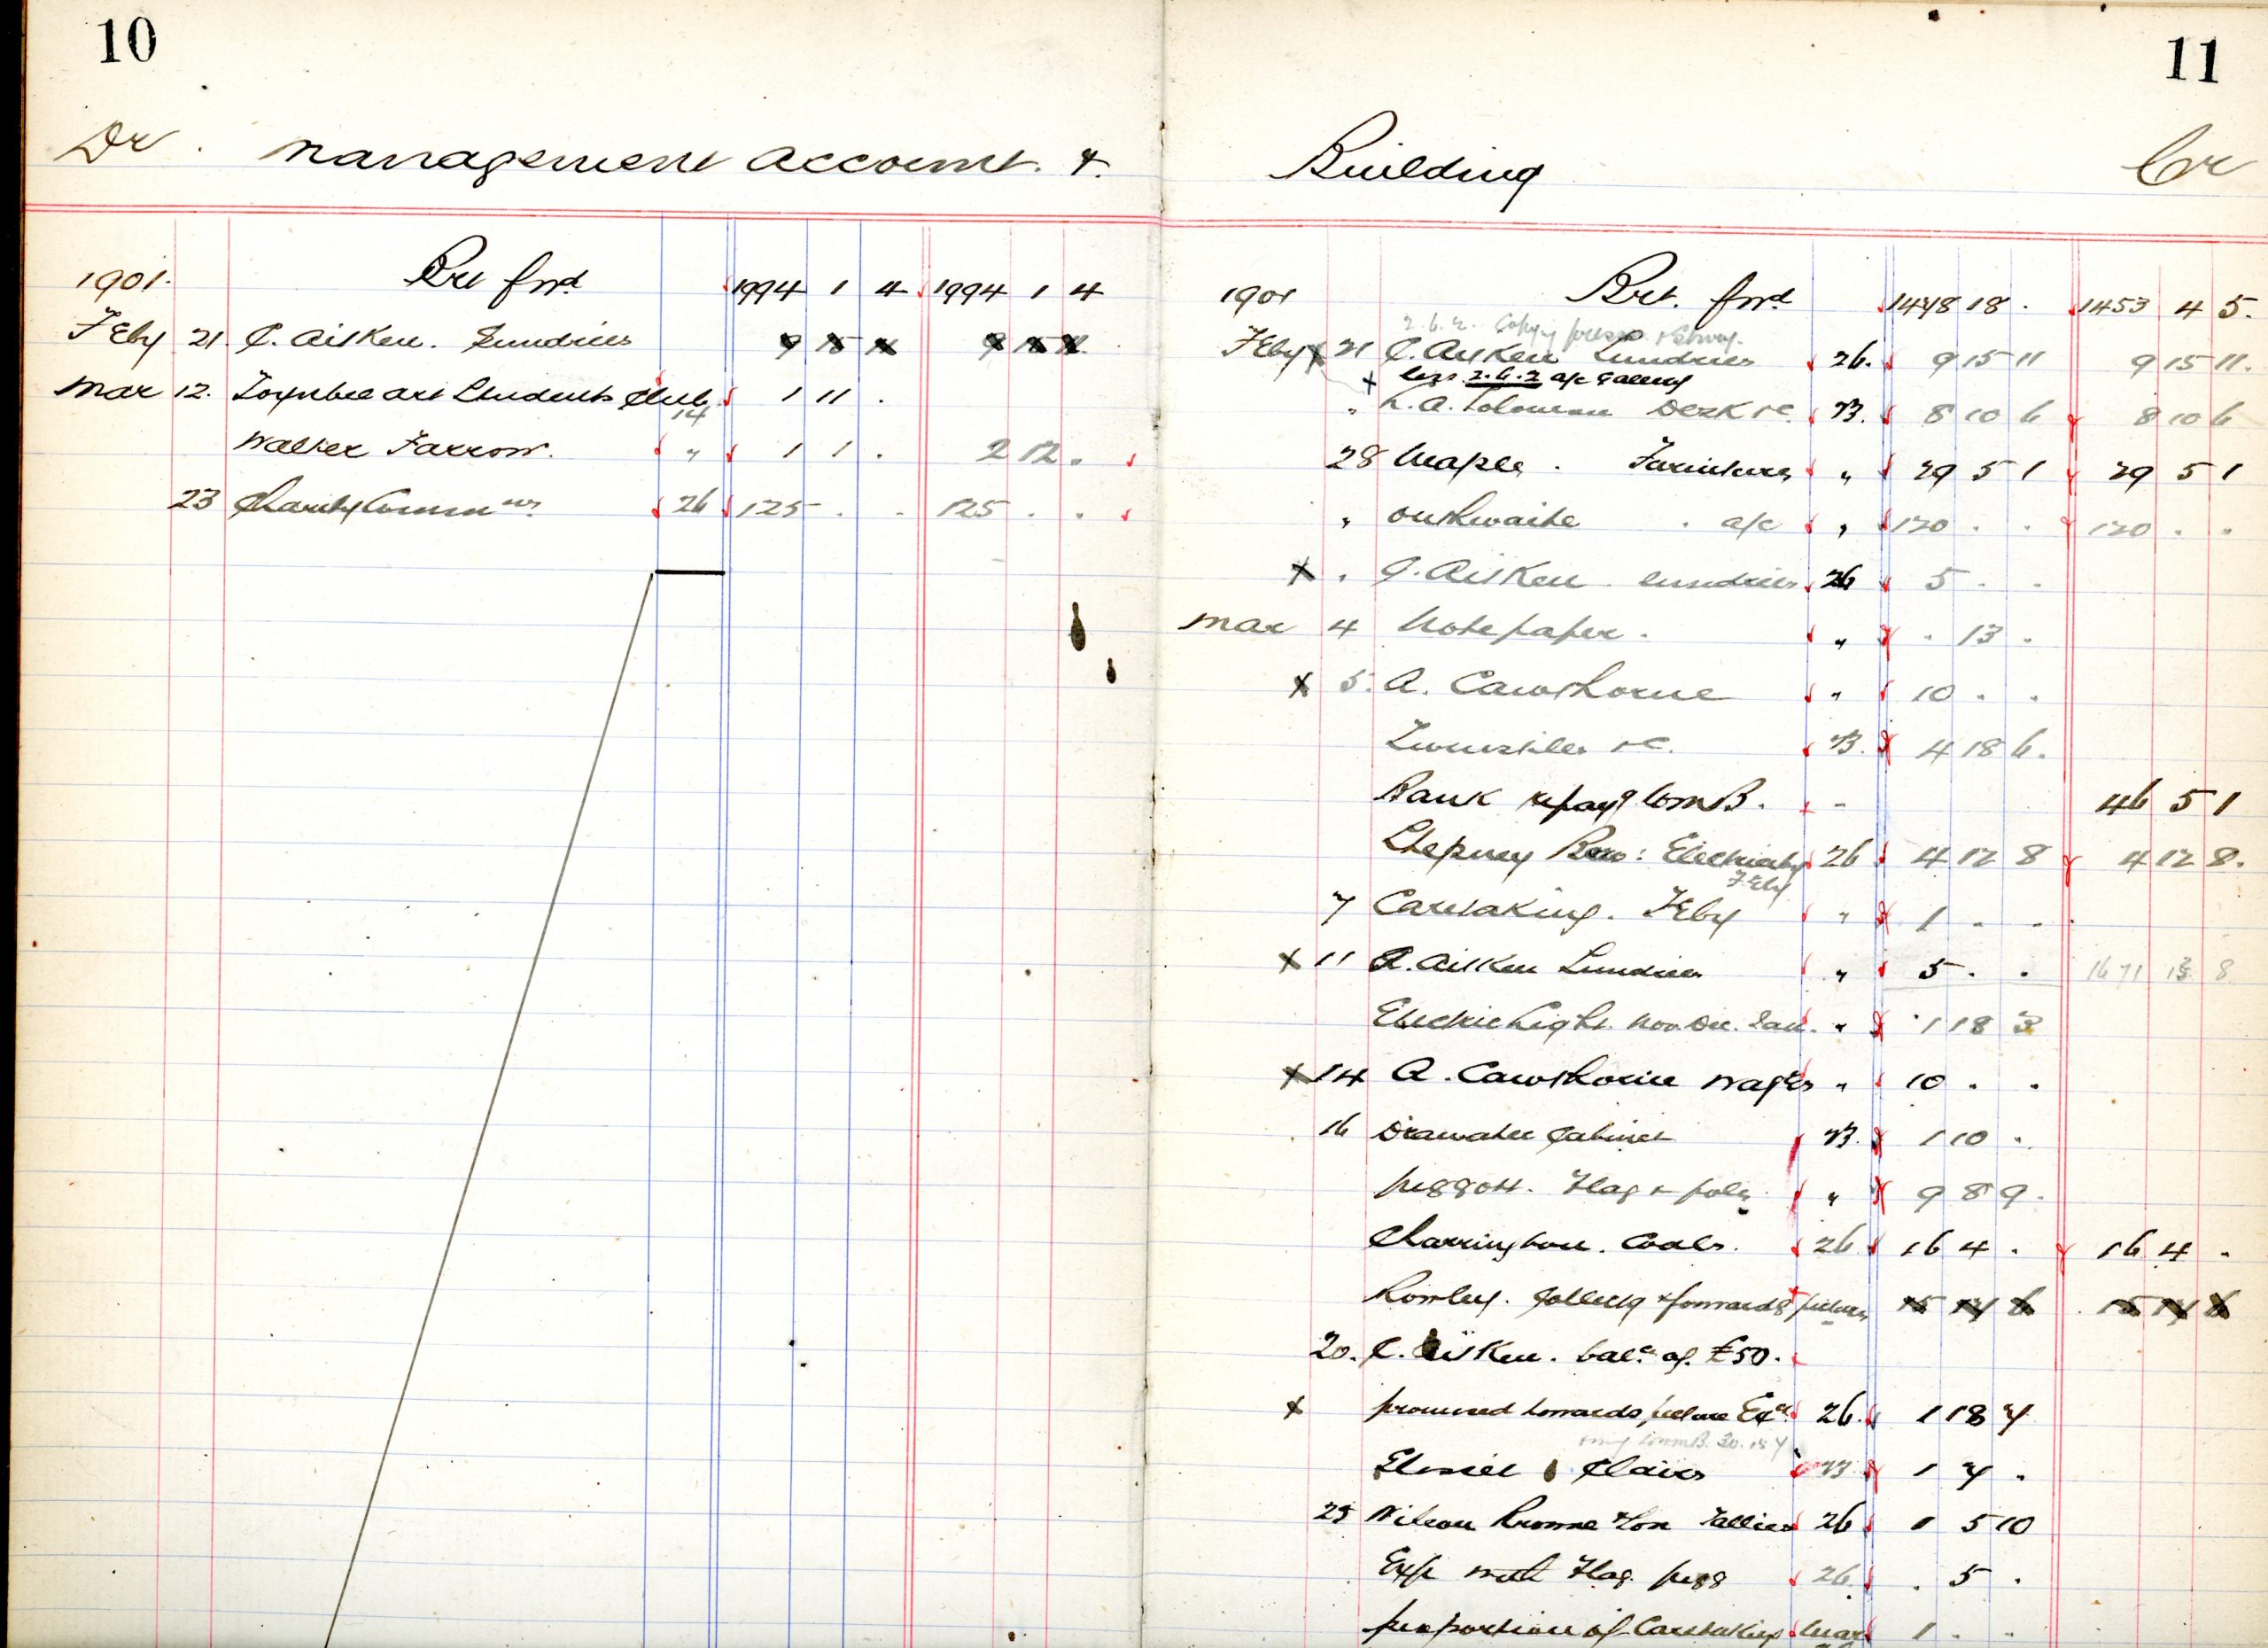 10
Dr. Management Account. &
1901. Brt fwd 1994 1 4 1994 1 4
Feby 21. C. Aitken. Sundries 9 15 11 9 15 11
Mar 12. Toynbee Art Students Club 14 1 11 .
Walter Farrow. " 1 1 . 2 12 .
23 Charity Commrs 26 125 . . 125 . .
11
Building Cr
1901 Brt. fwd 1478 18 . 1453 4 5.
2.6.2. Copying press &
Feby 21 C. Aitken Sundries 26. 9 15 11 9 15 11.
less 2.6.2 a/c Gallery
" Desk &c. B. 8 10 6 8 10 6
28 Maple. Furniture " 29 5 1 29 5 1
" Outhwaite . a/c " 120 . . 120 . .
X " C. Aitken. sundries 26 5 . .
Mar 4 Notepaper. " . 13 .
X 5. A. Cawthorne " 10 . .
&c. B. 4 18 6.
Bank repayg Com B. - 46 5 1
Stepney Boro: Electricity 26 4 12 8 4 12 8.
Feby
7 Caretaking. Feby " 1 . .
X 11 C. Aitken Sundries " 5 . . 1671 13 8
Electric Light. Nov. Dec. Jan. " 1 18 3
X 14 A. Cawthorne wages " 10 . .
16 Cabinet B. 1 10 .
Piggott. Flag & pole " 9 8 9.
Charrington. Coals. 26 16 4 . 16 4 .
Rowley. Collectg & forwardg pictures 15 14 6 15 14 6
20. C. Aitken. balce of £50.
X promised towards picture Exn. 26. 1 18 7
Com B. 30. 15 7
Chairs B 1 7 .
25 26 1 5 10
Exp with Flag. Pigg 26. . 5 .
proportion of Caretaking Mar 1 . .